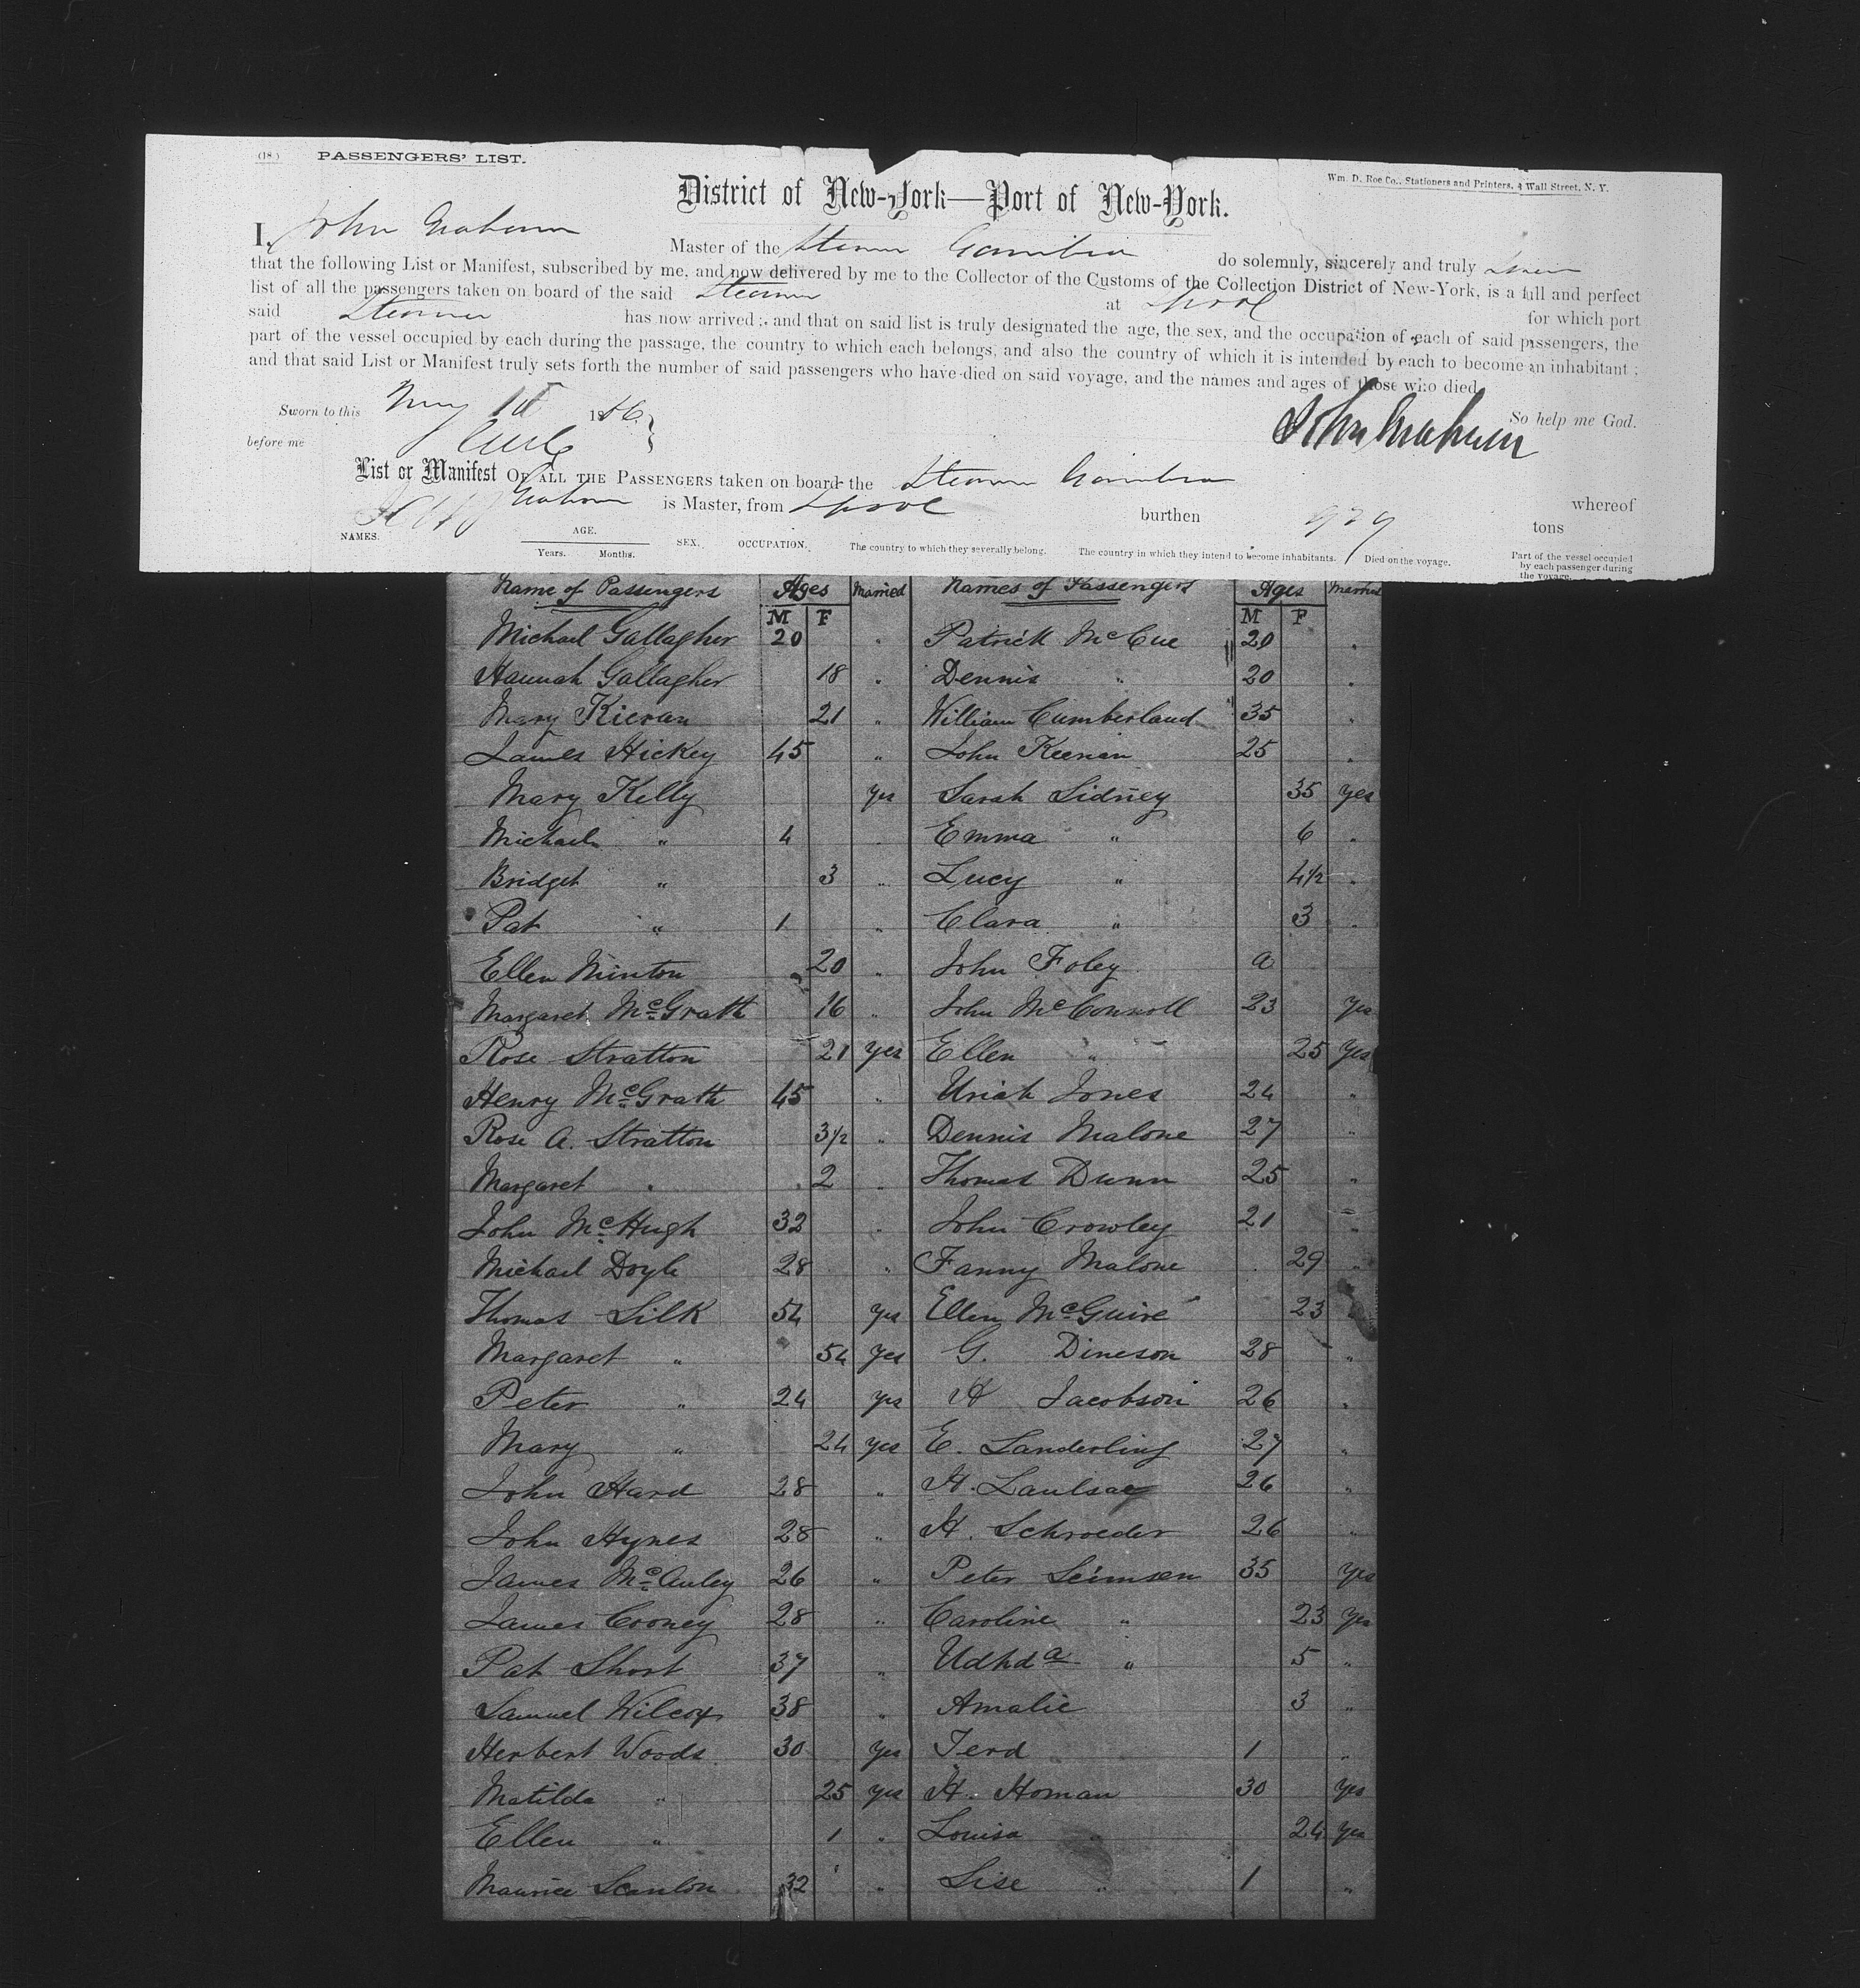 (18.) PASSENGERS' LIST.
Wm. D. Roe Co., Stationers and Printers, 4 Wall Street, N. Y.
District of New-York—Port of New-York.
I, John Graham Master of the Steamer Gambia do solemnly, sincerely and truly swear
that the following List or Manifest, subscribed by me, and now delivered by me to the Collector of the Customs of the Collection District of New-York, is a full and perfect
list of all the passengers taken on board of the said Steamer at Lpool for which port
said Steamer has now arrived; and that on said list is truly designated the age, the sex, and the occupation of each of said passengers, the
part of the vessel occupied by each during the passage, the country to which each belongs, and also the country of which it is intended by each to become an inhabitant;
and that said List or Manifest truly sets forth the number of said passengers who have died on said voyage, and the names and ages of those who died.
Sworn to this May 1886 So help me God.
before me John Graham
List or Manifest OF ALL THE PASSENGERS taken on board the Steamer Gambia whereof
Graham is Master, from Lpool burthen tons
NAMES. AGE. SEX. OCCUPATION. The country to which they severally belong. The country in which they intend to become inhabitants. Died on the voyage. Part of the vessel occupied by each passenger during the voyage.
Years. Months.
Name of Passengers Ages Married Names of Passengers Ages Married
M F M F
Michael Gallagher 20 " Patrick McCue 20 "
Hannah Gallagher 18 " Dennis " 20 "
Mary Kieran 21 " William Cumberland 35 "
James Hickey 45 " John Keenan 25 "
Mary Kelly yes Sarah Sidney 35 yes
Michael " 4 " Emma " 6 "
Bridget " 3 " Lucy " 4½ "
Pat " 1 " Clara " 3 "
Ellen Minton 20 " John Foley a
Margaret McGrath 16 " John McConnoll 23 yes
Rose Stratton 21 yes Ellen " 25 yes
Henry McGrath 45 " Uriah Jones 24 "
Rose A. Stratton 3½ " Dennis Malone 27 "
Margaret " 2 " Thomas Dunn 25 "
John McHugh 32 " John Crowley 21 "
Michael Doyle 28 " Fanny Malone 29 "
Thomas Silk 54 yes Ellen McGuire 23
Margaret " 54 yes G. Dineson 28 "
Peter " 24 yes H Jacobson 26 "
Mary " 24 yes E. Sanderling 27 "
John Hard 28 " H. 26 "
John Hynes 28 " H. Schroeder 26 "
James McAuley 26 " Peter Seimsen 35 yes
James Cooney 28 " Caroline " 23 yes
Pat Short 37 " " 5 "
Samuel Wilcox 38 " Amalie 3 "
Herbert Woods 30 yes Ferd 1 "
Matilda " 25 yes H. Homan 30 yes
Ellen " 1 " Louisa " 24 yes
Maurice Scanlon 32 " Lise " 1 "